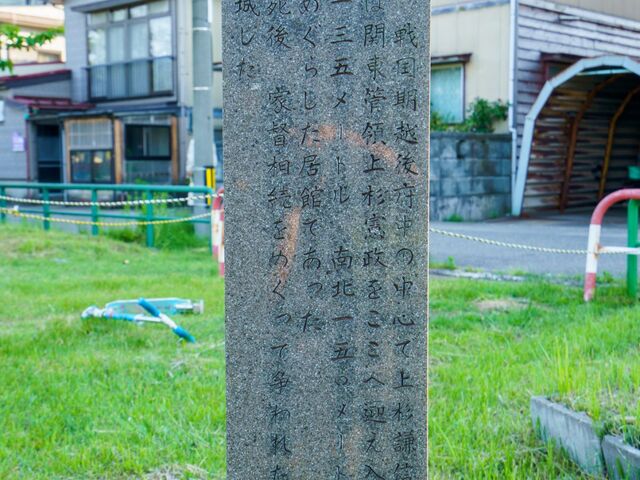 戦国期越後府中の中心で上杉謙信
は関東管領上杉憲政をここへ迎え入
一三五メートル 南北一五〇メート
めぐらした居館であった
死後 家督相続をめぐって争われた
城した